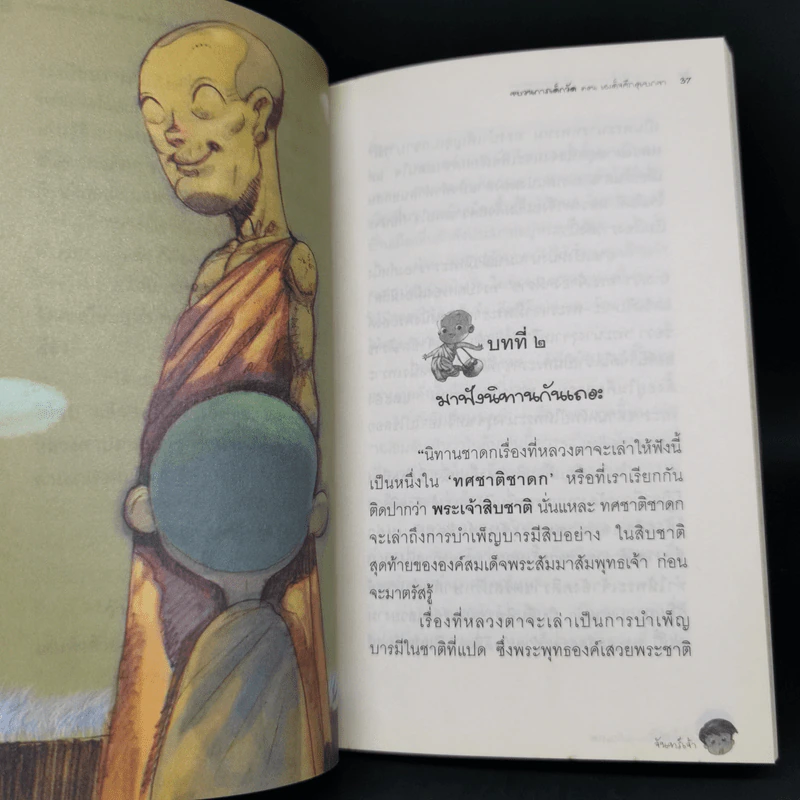 ตอน 37
บทที่ ๒
มาฟังนิทานกันเถอะ
“นิทานชาดกเรื่องที่หลวงตาจะเล่าให้ฟังนี้
เป็นหนึ่งใน ‘ทศชาติชาดก’ หรือที่เราเรียกกัน
ติดปากว่า พระเจ้าสิบชาติ นั่นแหละ ทศชาติชาดก
จะเล่าถึงการบำเพ็ญบารมีสิบอย่าง ในสิบชาติ
สุดท้ายขององค์สมเด็จพระสัมมาสัมพุทธเจ้า ก่อน
จะมาตรัสรู้
เรื่องที่หลวงตาจะเล่าเป็นการบำเพ็ญ
บารมีในชาติที่แปด ซึ่งพระพุทธองค์เสวยพระชาติ
จันทร์เจ้า